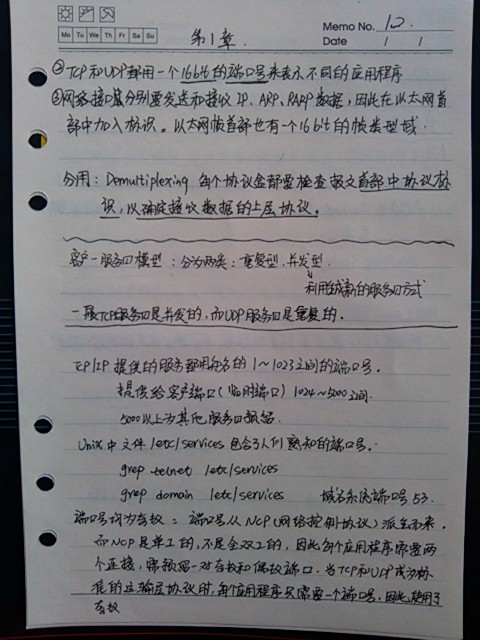 Memo No. 12.
Mo Tu We Th Fr Sa Su
Date / /
第1章.
② TCP和UDP都用一个16bit的端口号来表示不同的应用程序
③ 网络接口层分别要发送和接收IP、ARP、RARP数据,因此在以太网首
部中加入标识。以太网帧首部也有一个16bit的帧类型域.
分用:Demultiplexing 每个协议盒都要检查报文首部中协议标
识,以确定接收数据的上层协议。
客户-服务口模型:分为两类:重复型.并发型.
利用的服务口方式
一般TCP服务口是并发的,而UDP服务口是重复的.
TCP/IP提供的服务都用知名的1~1023之间的端口号.
提供给客户端口(临时端口)1024~5000之间.
5000以上为其他服务口预留.
Unix中文件/etc/services包含了人们熟知的端口号.
grep telnet /etc/services
grep domain /etc/services 域名系统端口号53.
端口号均为奇数:端口号从NCP(网络控制协议)派生而来.
而NCP是单工的,不是全双工的,因此每个应用程序需要两
个连接,需预留一对奇数和偶数端口.当TCP和UDP成为标
准的运输层协议时,每个应用程序只需要一个端口号.因此,使用了
奇数